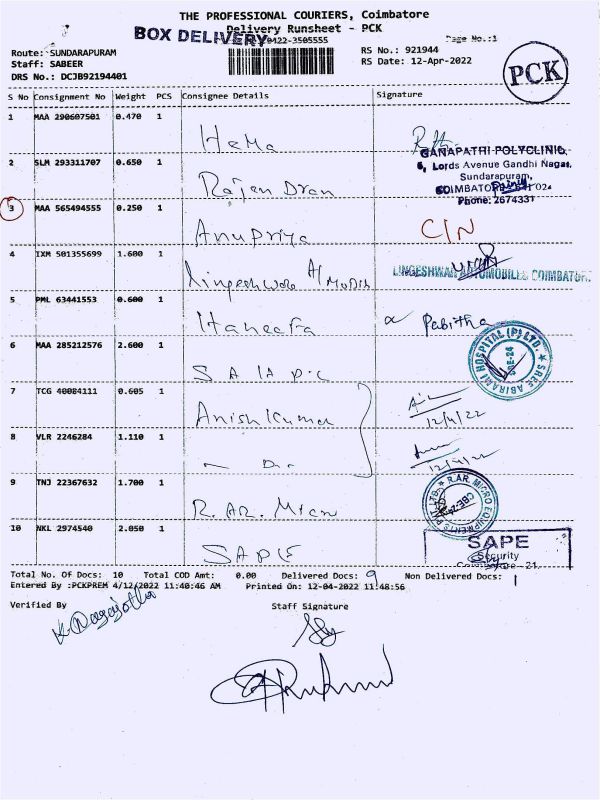 THE PROFESSIONAL COURIERS, Coimbatore
Delivery Runsheet - PCK
BOX DELIVERY
0422-3505555
Page No.:1
Route: SUNDARAPURAM
Staff: SABEER
DRS No.: DCJB92194401
RS No.: 921944
RS Date: 12-Apr-2022
PCK
S No Consignment No Weight PCS Consignee Details Signature
1 MAA 290607501 0.470 1 Hema
GANAPATHI POLYCLINIC,
6, Lords Avenue Gandhi Nagar,
Sundarapuram,
COIMBATORE 641 024
Phone: 2674331
2 SLM 293311707 0.650 1 Rajen Dran
3 MAA 565494555 0.250 1 Anupriya C/N
4 IXM 501355699 1.600 1
LINGESHWAR AUTOMOBILES COIMBATORE
5 PML 63441553 0.600 1 Haneefa Pabitha
6 MAA 285212576 2.600 1
SREE ABIRAMI HOSPITAL (P) LTD. CBE-24
7 TCG 40084111 0.605 1 Anish Kumar 12/4/22
8 VLR 2246284 1.110 1 12/4/22
9 TNJ 22367632 1.700 1 R.AR. Micro
R.AR. MICRO EQUIPMENTS PVT LTD
10 NKL 2974540 2.050 1 SAPE
SAPE
Security
Coimbatore - 21
Total No. Of Docs: 10 Total COD Amt: 0.00 Delivered Docs: 9 Non Delivered Docs: 1
Entered By :PCKPREM 4/12/2022 11:40:46 AM Printed On: 12-04-2022 11:48:56
Verified By Staff Signature